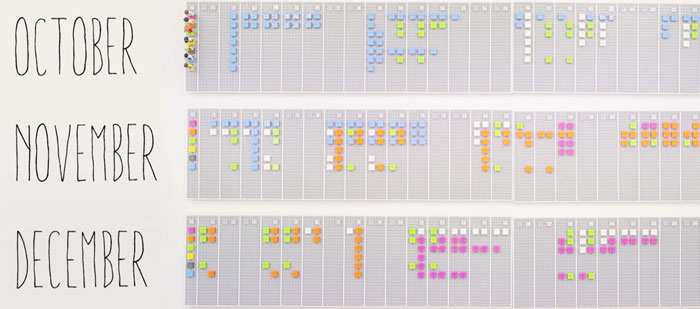 OCTOBER
NOVEMBER
DECEMBER